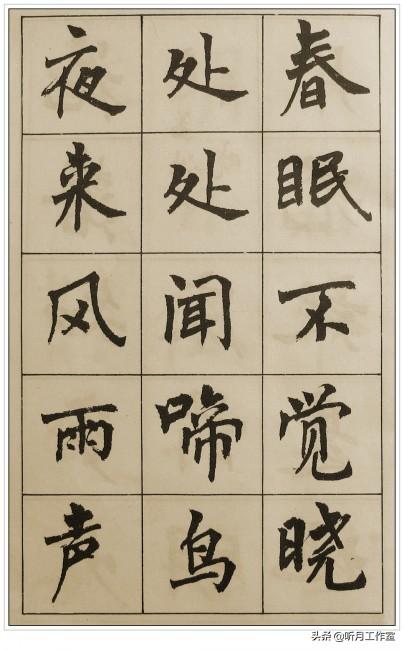 春眠不觉晓
处处闻啼鸟
夜来风雨声
头条 @听月工作室